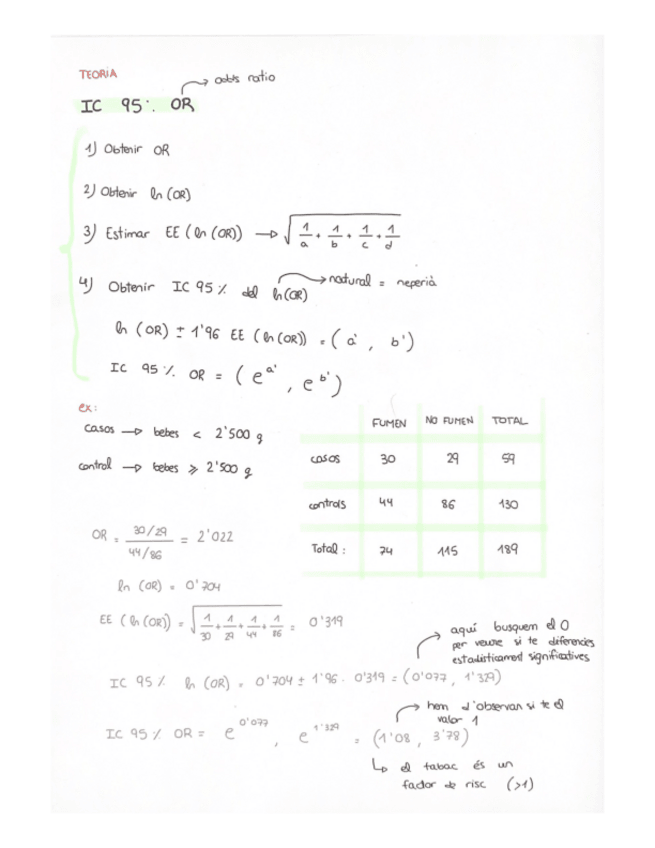 TEORIA
→ odds ratio
IC 95% OR
1) Obtenir OR
2) Obtenir ln (OR)
3) Estimar EE (ln (OR)) → √(1/a + 1/b + 1/c + 1/d)
4) Obtenir IC 95% del ln(OR) → natural = neperià
ln (OR) ± 1'96 EE (ln (OR)) = (a', b')
IC 95% OR = (e^a', e^b')
ex:
casos → bebes < 2'500 g
control → bebes ≥ 2'500 g
FUMEN NO FUMEN TOTAL
casos 30 29 59
controls 44 86 130
Total: 74 115 189
OR = (30/29)/(44/86) = 2'022
ln (OR) = 0'704
EE (ln (OR)) = √(1/30 + 1/29 + 1/44 + 1/86) = 0'319
aquí busquem el 0
per veure si te diferencies
estadísticament significatives
IC 95% ln (OR) = 0'704 ± 1'96 · 0'319 = (0'077, 1'329)
hem d'observar si te el
valor 1
IC 95% OR = e^0'077, e^1'329 = (1'08, 3'78)
↳ el tabac és un
factor de risc (>1)